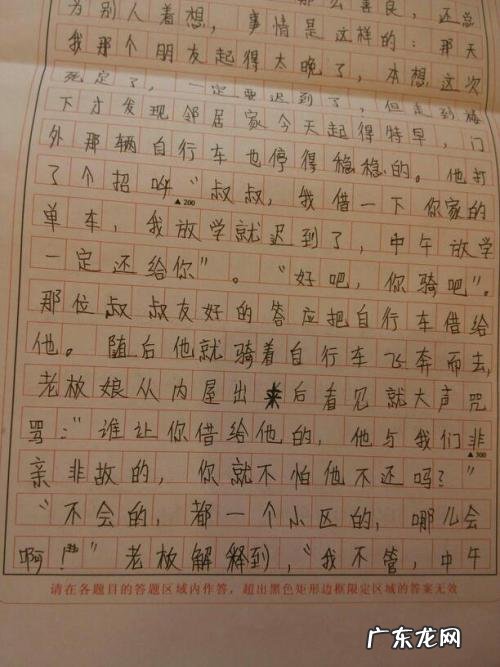 为别人着想，事情是这样的：那天
我那个朋友起得太晚了，本想这次
死定了，一定要迟到了，但走到楼
下才发现邻居家今天起得特早，门
外那辆自行车也停得稳稳的。他打
了个招呼“叔叔，我借一下你家的
▲200
单车，我放学就迟到了，中午放学
一定还给你”。“好吧，你骑吧”。
那位叔叔友好的答应把自行车借给
他。随后他就骑着自行车飞奔而去，
老板娘从内屋出来后看见就大声咒
骂：“谁让你借给他的，他与我们非
▲300
亲非故的，你就不怕他不还吗？”
“不会的，都一个小区的，哪儿会
啊！”老板解释到，“我不管，中午
请在各题目的答题区域内作答，超出黑色矩形边框限定区域的答案无效
广东龙网